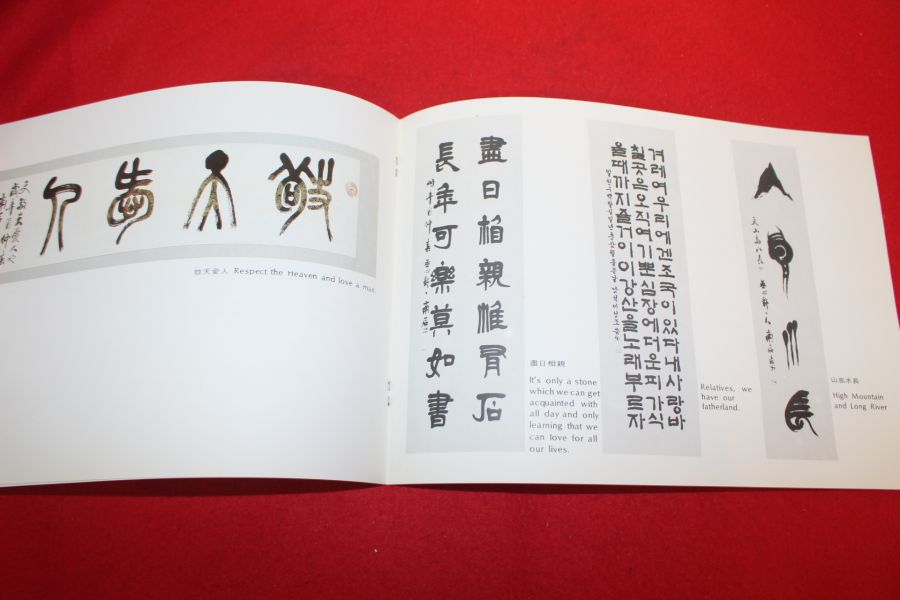 敬天愛人
敬天愛人 Respect the Heaven and love a man.
盡日相親惟有石
長年可樂莫如書
盡日相親
It's only a stone
which we can get
acquainted with
all day and only
learning that we
can love for all
our lives.
겨레여우리에겐조국이있다내사랑바
칠곳은오직여기뿐심장에더운피가식
을때까지즐거이이강산을노래부르자
Relatives, we
have our
fatherland.
山高水長
山高水長
High Mountain
and Long River